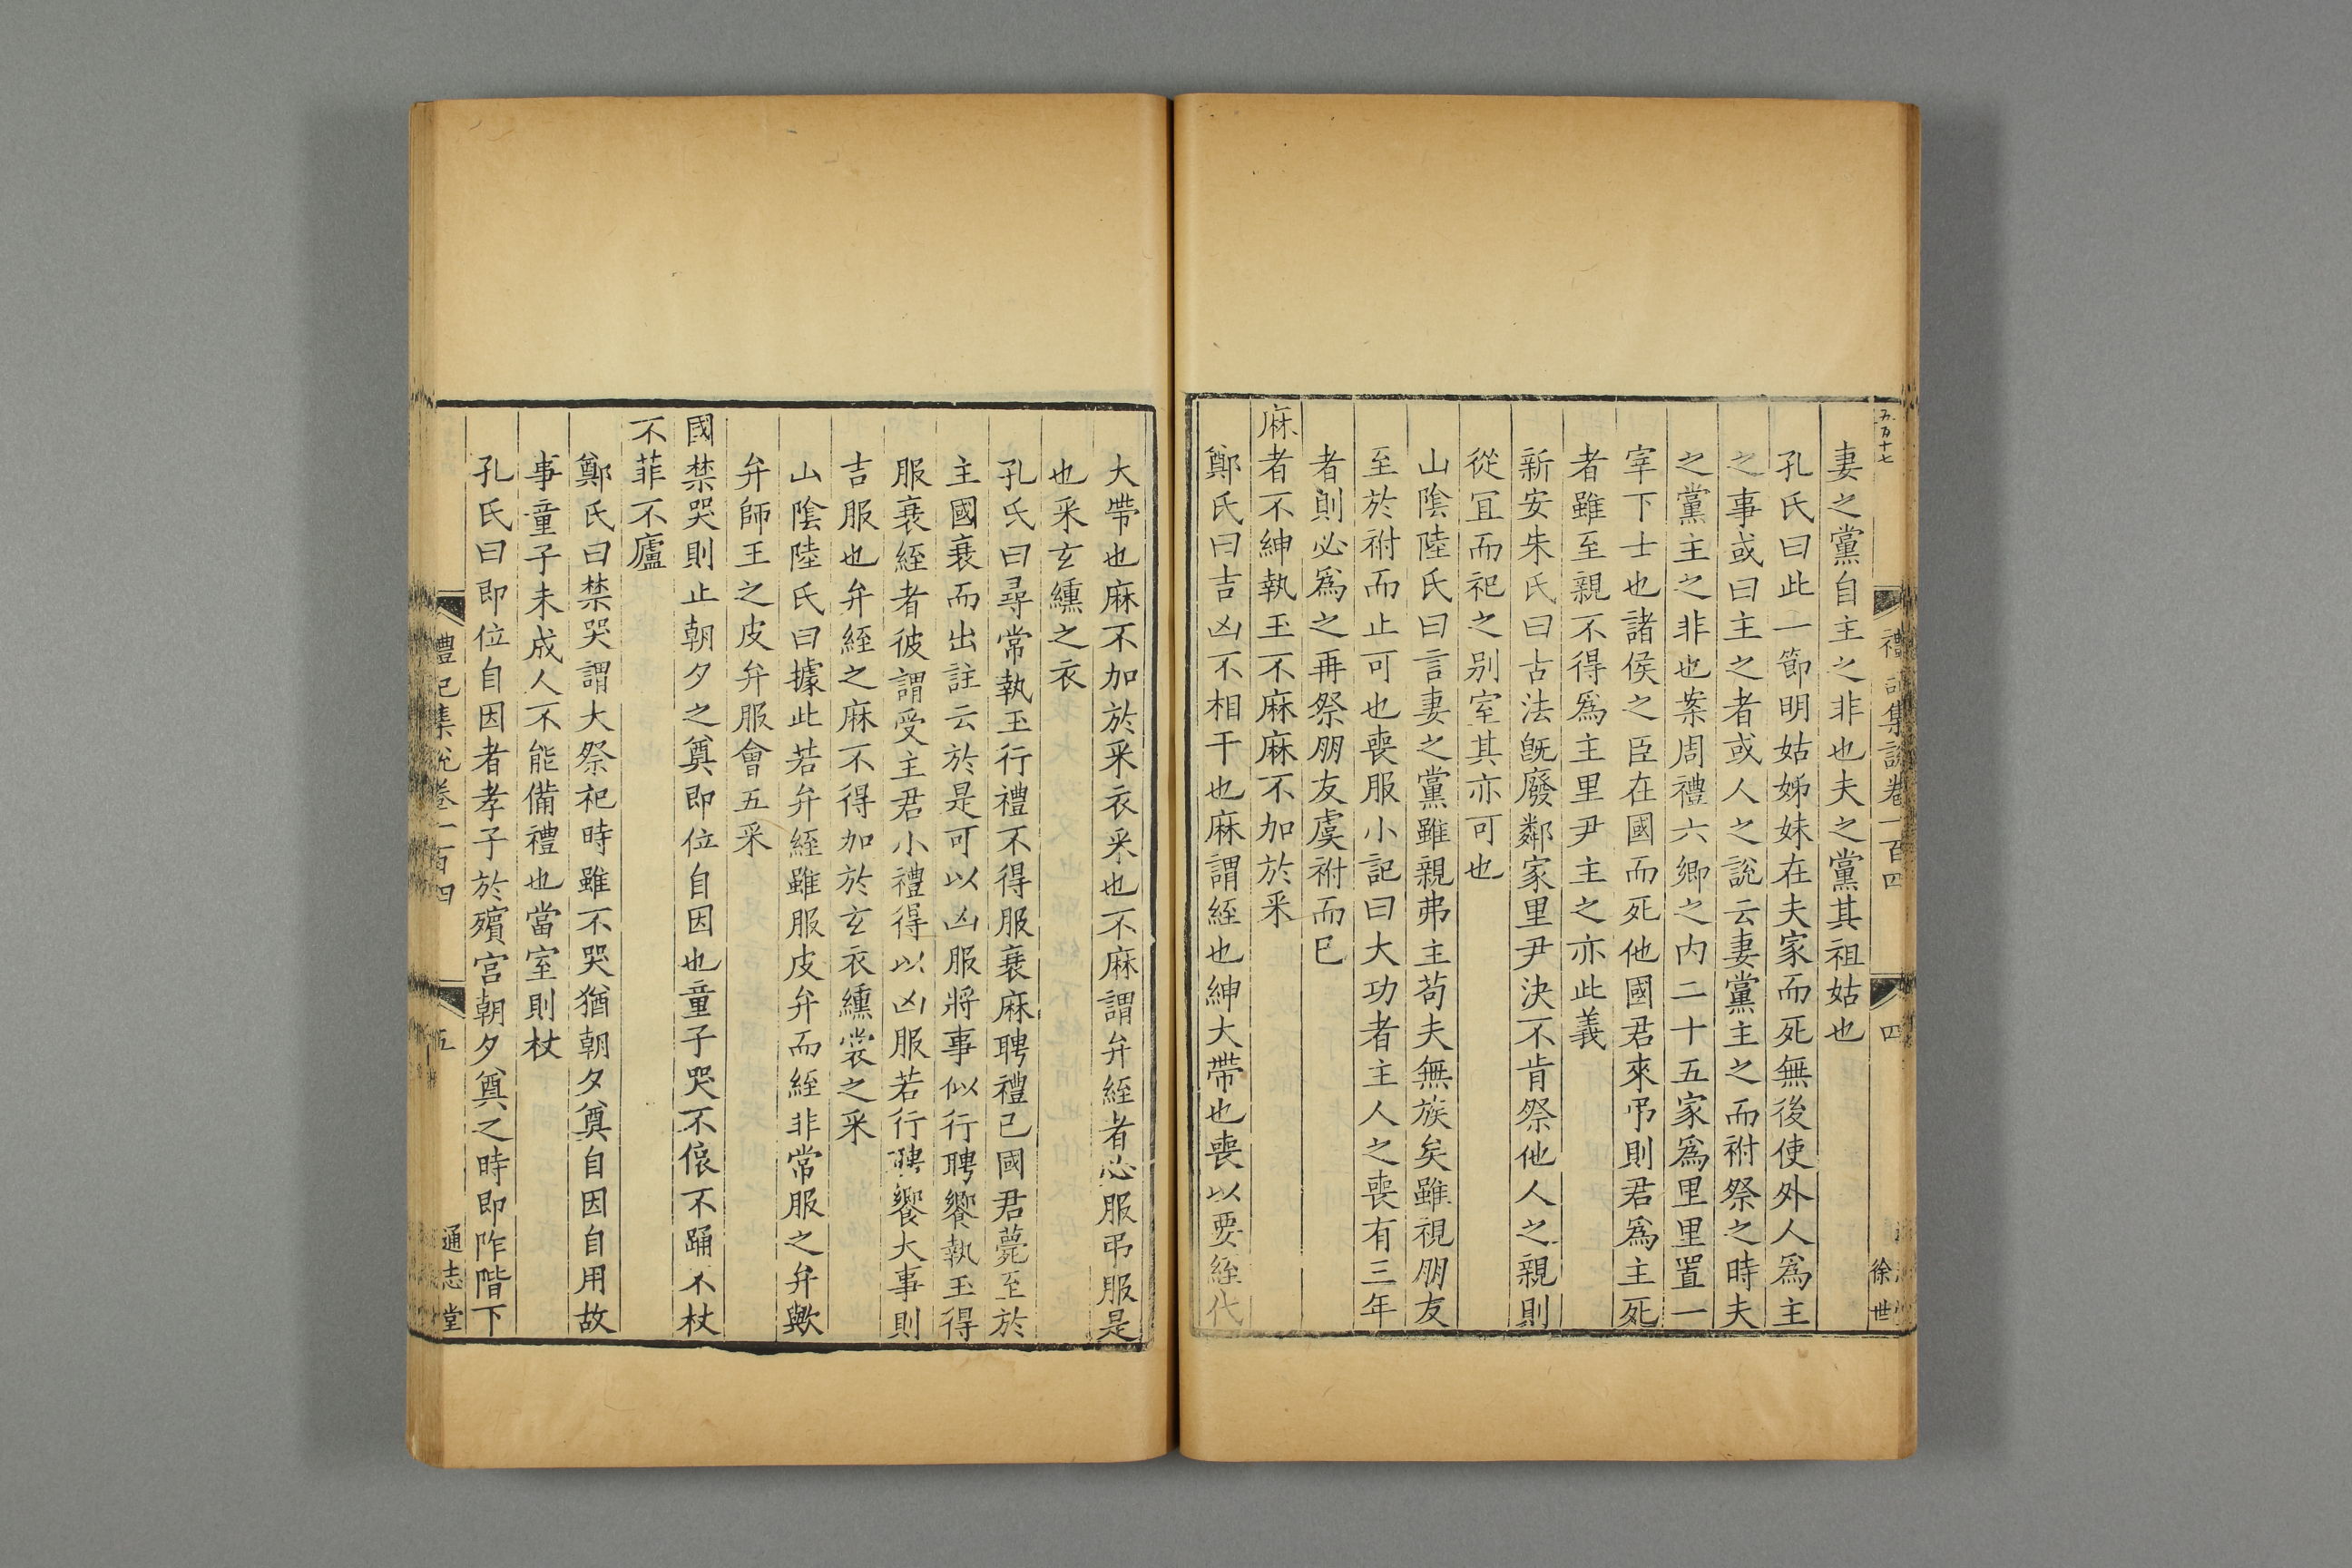 五百十七
禮記集說卷一百四
四
徐世
妻之黨自主之非也夫之黨其祖姑也
孔氏曰此一節明姑姊妹在夫家而死無後使外人爲主
之事或曰主之者或人之說云妻黨主之而祔祭之時夫
之黨主之非也案周禮六鄉之內二十五家爲里里置一
宰下士也諸侯之臣在國而死他國君來弔則君爲主死
者雖至親不得爲主里尹主之亦此義
新安朱氏曰古法旣廢鄰家里尹決不肯祭他人之親則
從宜而祀之别室其亦可也
山陰陸氏曰言妻之黨雖親弗主苟夫無族矣雖視朋友
至於祔而止可也喪服小記曰大功者主人之喪有三年
者則必爲之再祭朋友虞祔而已
麻者不紳執玉不麻麻不加於采
鄭氏曰吉凶不相干也麻謂絰也紳大帶也喪以要絰代
大帶也麻不加於采衣采也不麻謂弁絰者必服弔服是
也采玄纁之衣
孔氏曰尋常執玉行禮不得服衰麻聘禮已國君薨至於
主國衰而出註云於是可以凶服將事似行聘饗執玉得
服衰絰者彼謂受主君小禮得以凶服若行聘饗大事則
吉服也弁絰之麻不得加於玄衣纁裳之采
山陰陸氏曰據此若弁絰雖服皮弁而絰非常服之弁歟
弁師王之皮弁服會五采
國禁哭則止朝夕之奠即位自因也童子哭不偯不踊不杖
不菲不廬
鄭氏曰禁哭謂大祭祀時雖不哭猶朝夕奠自因自用故
事童子未成人不能備禮也當室則杖
孔氏曰即位自因者孝子於殯宮朝夕奠之時即阼階下
禮記集說卷一百四
五
通志堂